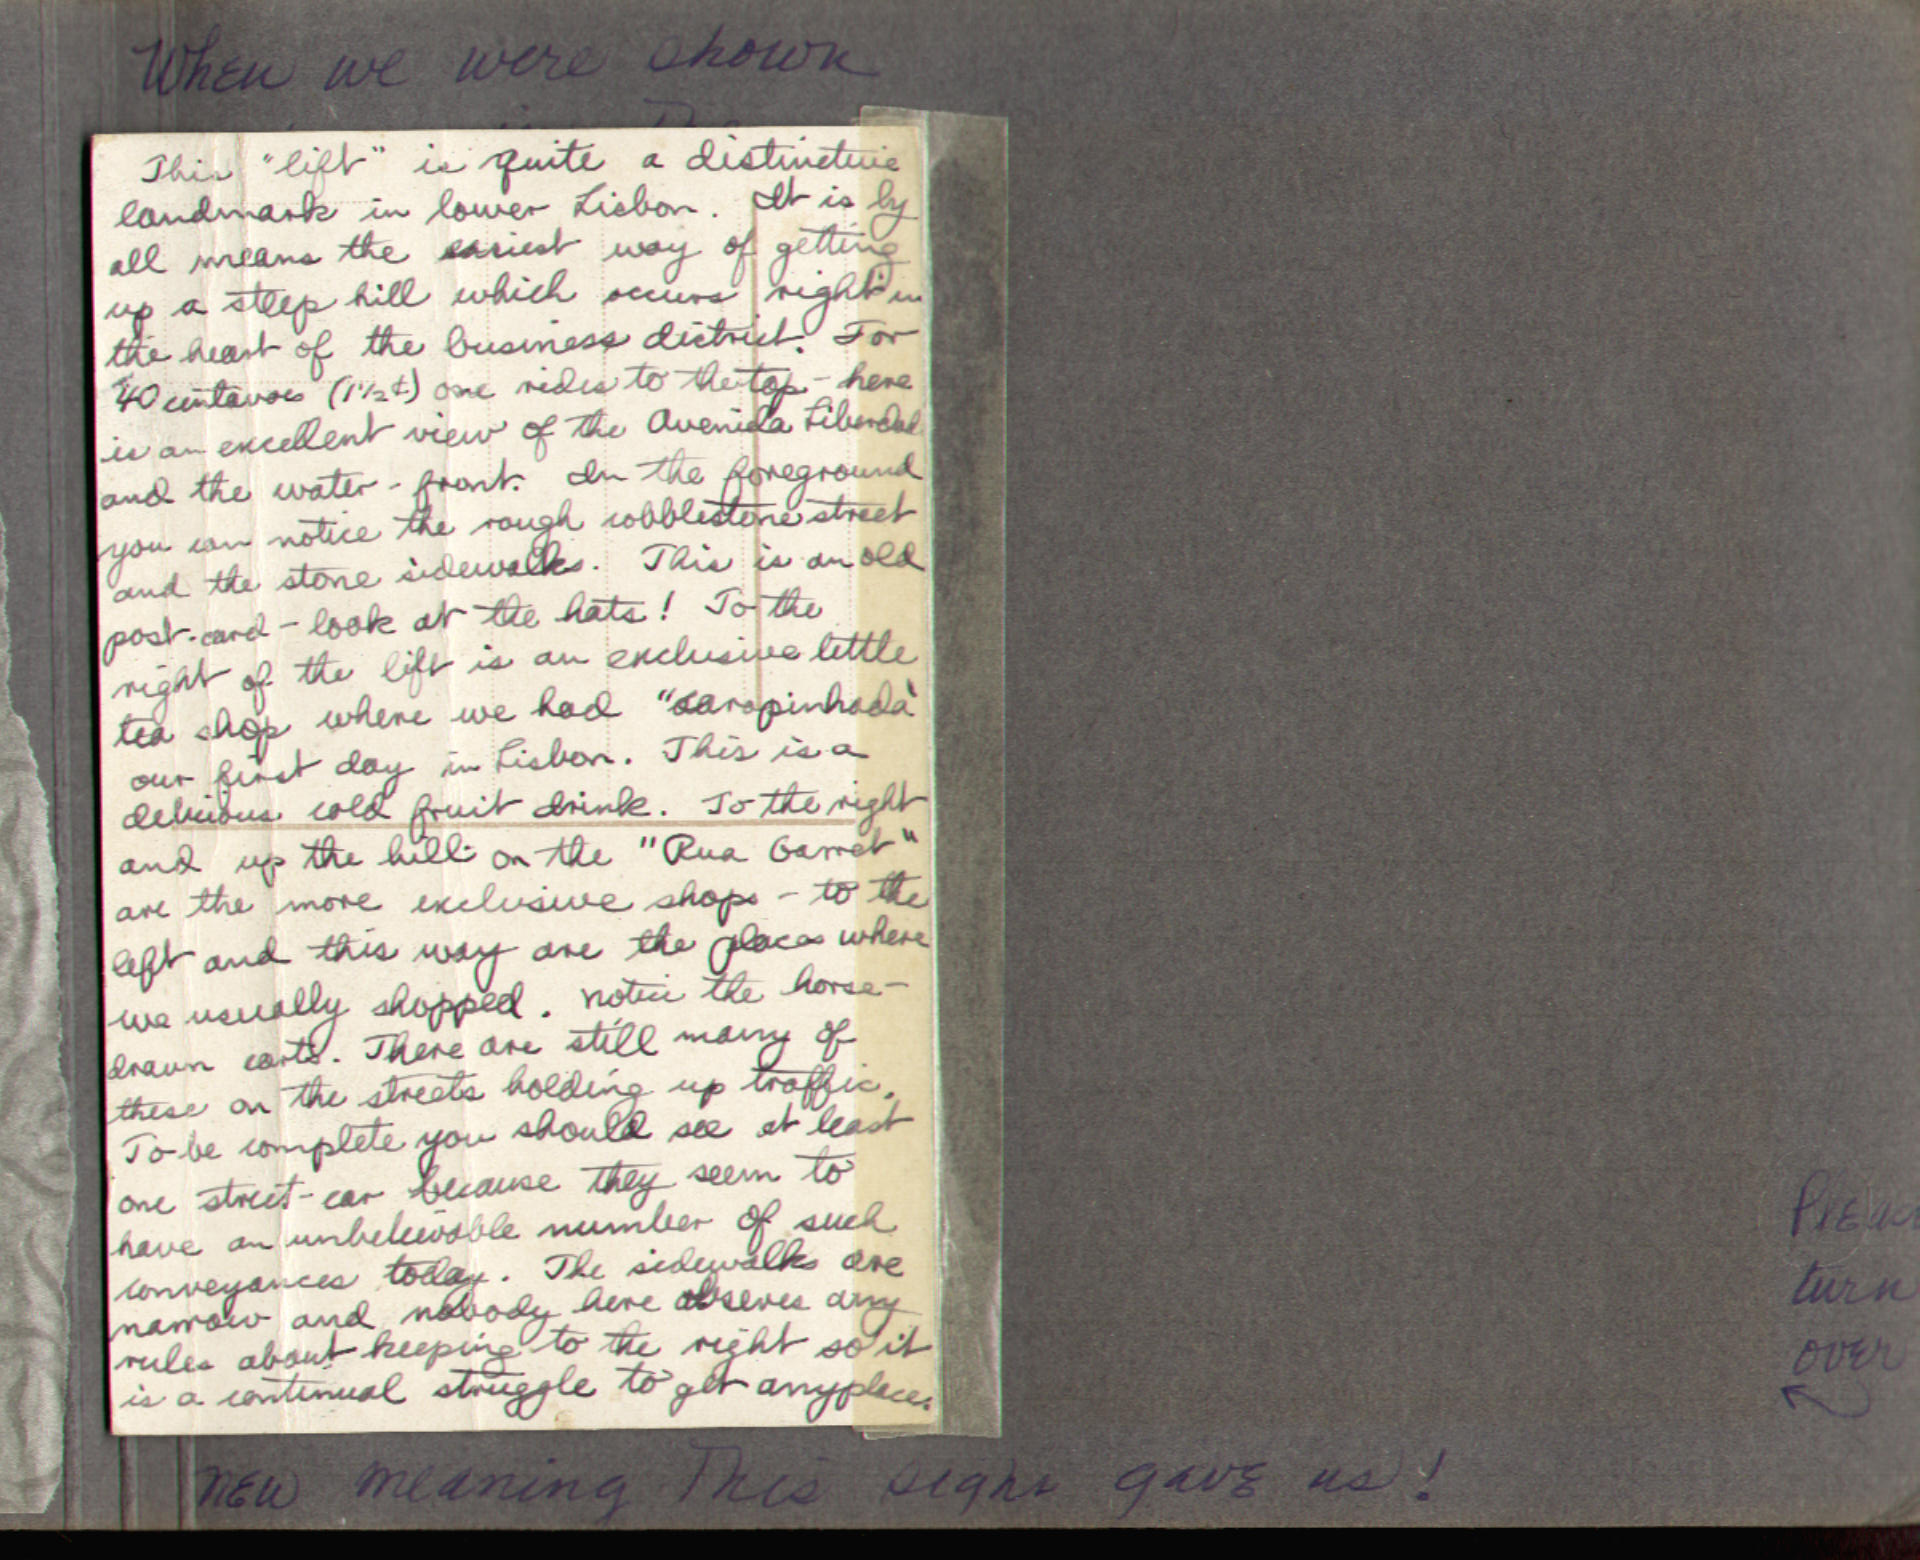 When we were shown
This "lift" is quite a distinctive
landmark in lower Lisbon. It is by
all means the easiest way of getting
up a steep hill which occurs right in
the heart of the business district. For
40 centavos (1½¢) one rides to the top - here
is an excellent view of the Avenida Liberdad
and the water-front. In the foreground
you can notice the rough cobblestone street
and the stone sidewalks. This is an old
post-card - look at the hats! To the
right of the lift is an exclusive little
tea shop where we had "carapinhada"
our first day in Lisbon. This is a
delicious cold fruit drink. To the right
and up the hill on the "Rua Garret"
are the more exclusive shops - to the
left and this way are the places where
we usually shopped. Notice the horse-
drawn carts. There are still many of
these on the streets holding up traffic.
To be complete you should see at least
one street-car because they seem to
have an unbelievable number of such
conveyances today. The sidewalks are
narrow and nobody here observes any
rules about keeping to the right so it
is a continual struggle to get anyplace.
Please
turn
over
new meaning this sight gave us!